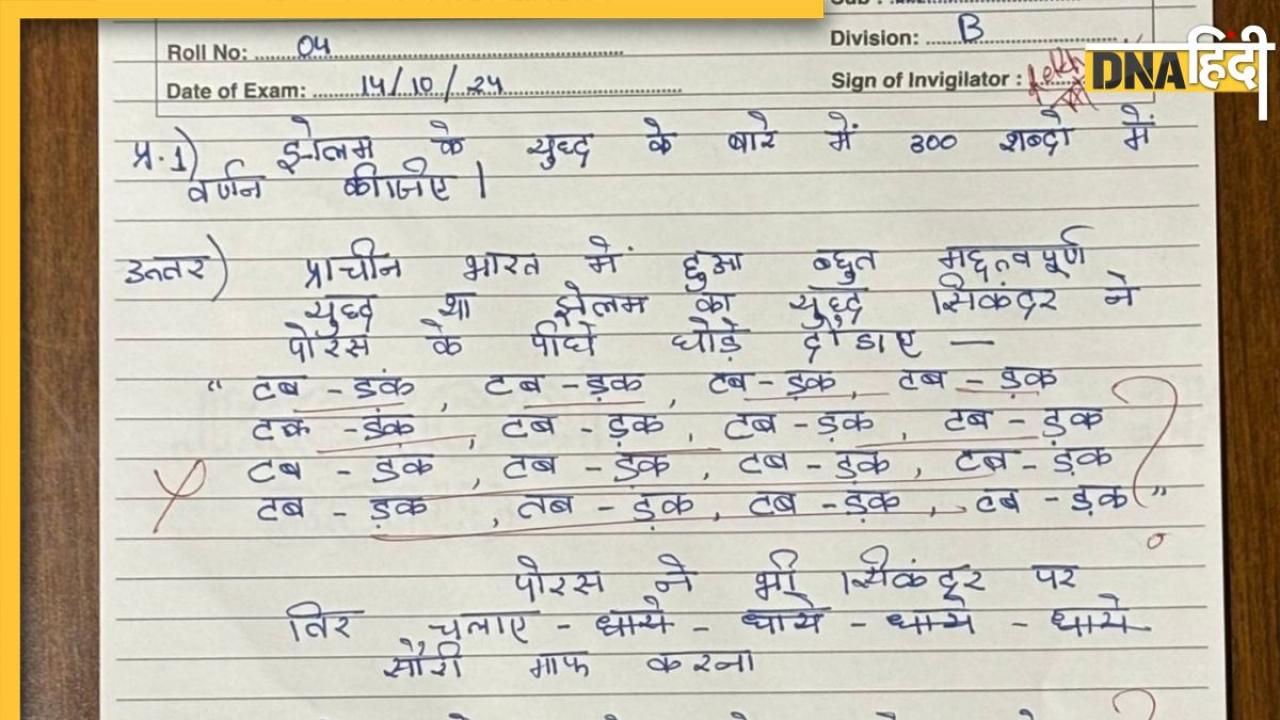 Roll No: 04
Division: B
Date of Exam: 14/10/24
Sign of Invigilator :
DNA हिंदी
प्र.1) झेलम के युध्द के बारे में 300 शब्दो में
वर्णन कीजिए।
उत्तर) प्राचीन भारत में हुआ बहुत महत्वपूर्ण
युध्द था झेलम का युध्द सिकंदर ने
पोरस के पीछे घोड़े दौडाए —
“ टब - डंक, टब - ड़क, टब - ड़क, टब - ड़क
टक - डंक, टब - ड़क, टब - ड़क, टब - ड़क
टब - ड़क, टब - ड़क, टब - ड़क, टब - ड़क
टब - ड़क, तब - ड़क, टब - ड़क, टब - ड़क ”
पोरस ने भी सिकंदर पर
तिर चलाए - धाये - धाये - धाये - धाये
सॉरी माफ करना